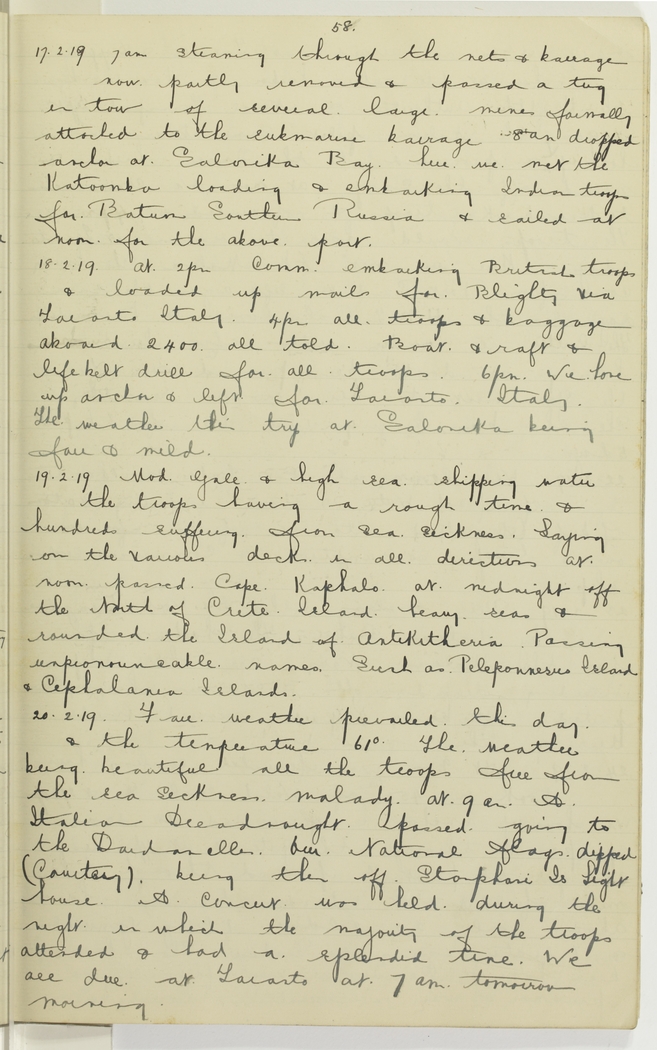 58.
17.2.19 7am Steaming through the nets & barrage
now partly removed & passed a tug
in tow of several large mines formally
attached to the submarine barrage 8am dropped
anchor at Salonika Bay. here we met the
Katoomba loading & embarking Indian troops
for Batum Southern Russia & sailed at
noon for the above port.
18.2.19. at 2pm Comm. embarking British troops
& loaded up mails for Blighty via
Taranto Italy. 4pm all troops & baggage
aboard 2400 all told. Boat & raft &
life belt drill for all troops. 6pm. We hove
up anchor & left for Taranto. Italy.
The weather this trip at Salonika being
fair & mild.
19.2.19 Mod. Gale & high sea. shipping water
the troops having a rough time &
hundreds suffering from sea sickness. Laying
on the various decks in all directions at
noon passed Cape Kaphalo at midnight off
the North of Crete Island heavy seas &
rounded the Island of AntiKitheria. Passing
unpronounceable names. Such as Peleponnesus Island
& Cephalania Islands.
20.2.19. Fair weather prevailed this day.
& the temperature 61°. The weather
being beautiful all the troops free from
the sea sickness malady. at 9am. A
Italian Dreadnought passed going to
the Dardanelles. our National flags dipped
(Courtesy). being then off Stamphani Is Light
house. A Concert was held during the
night in which the majority of the troops
attended & had a splendid time. We
are due at Taranto at 7am tomorrow
morning.